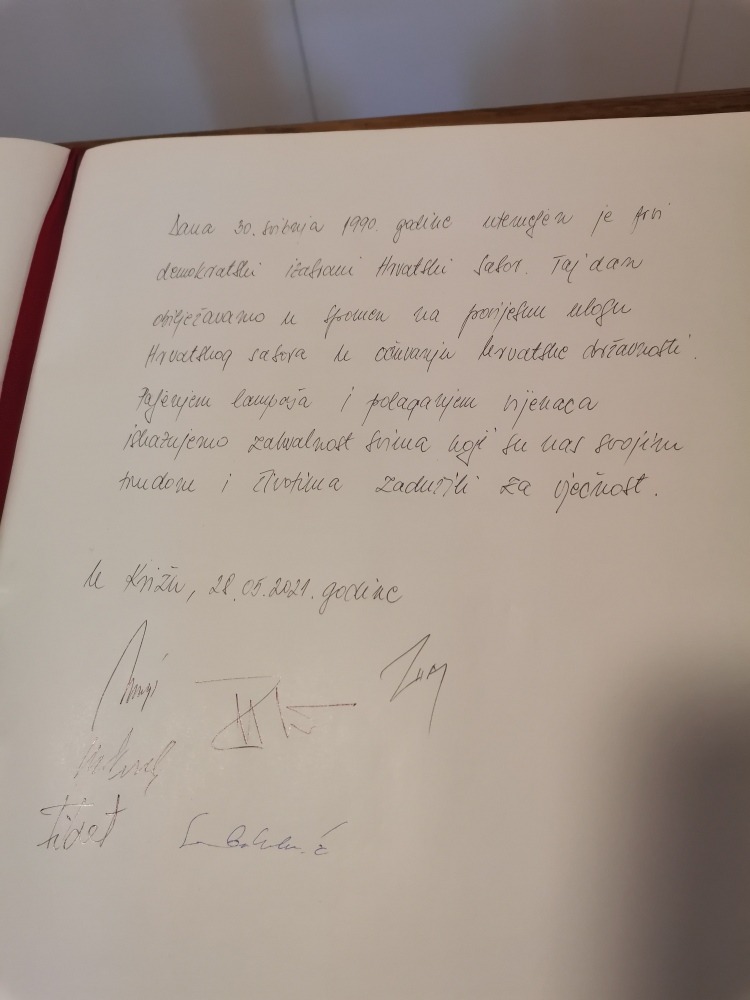 Dana 30. svibnja 1990. godine utemeljen je prvi
demokratski izabrani Hrvatski sabor. Taj dan
obilježavamo u spomen na povijesnu ulogu
Hrvatskog sabora u očuvanju hrvatske državnosti.
Paljenjem lampaša i polaganjem vijenaca
iskazujemo zahvalnost svima koji su nas svojim
trudom i životima zadužili za vječnost.
U Križu, 28.05.2021. godine